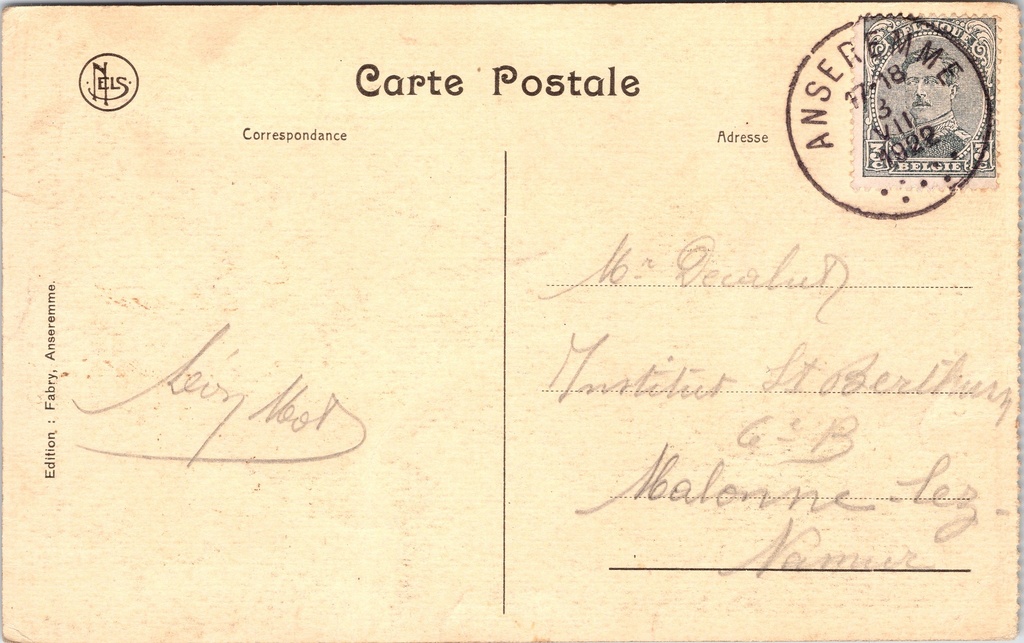 NELS
Carte Postale
Correspondance
Adresse
ANSEREMME
17-18
3
VII
1922
BELGIQUE
3 BELGIË
Edition : Fabry, Anseremme.
Léon
Mr
Institut St Berthuin
6e B
Malonne lez-
Namur